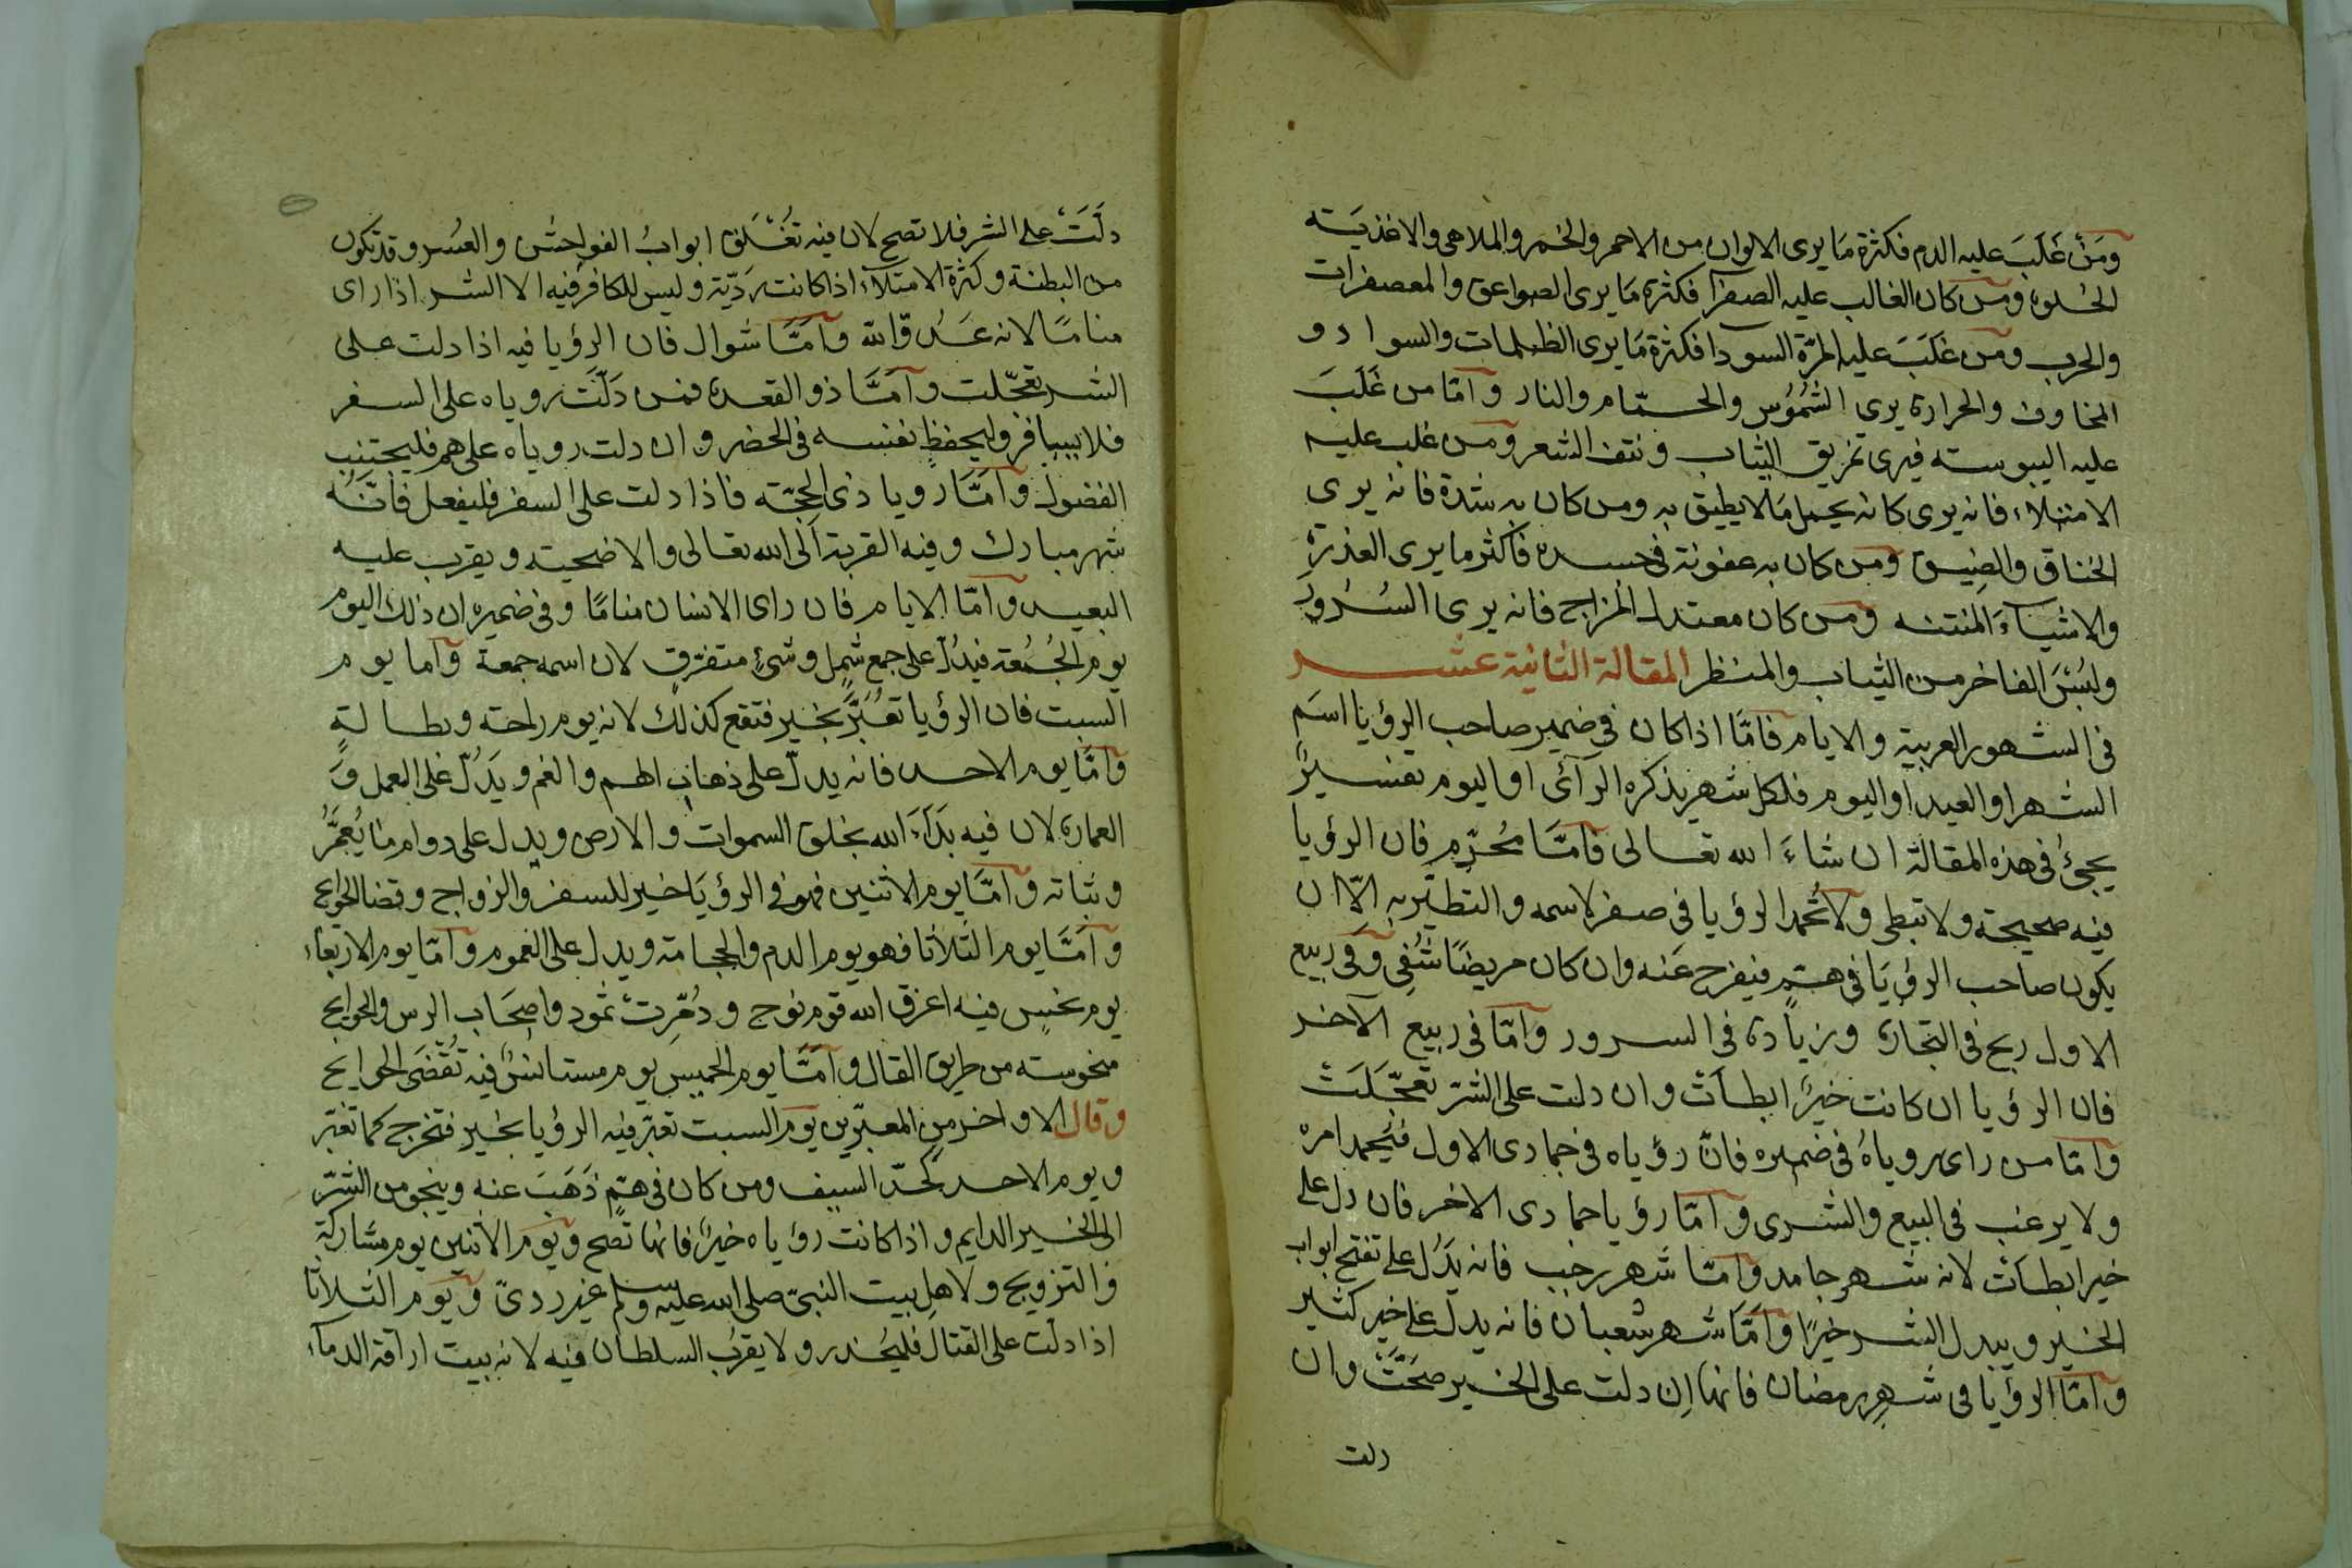 ومَنْ غَلَبَ عليه الدم فكثرة مَا يرى الالوان من الاحمر والخمر والملاهى والاغذيَته
الحُلوة ومن كان الغالب عليه الصفرآ فكثرة مَا يرى الصواعق والمعصفرات
والحرب ومن غَلَبَ عليه المرّة السودا فكثرة مَا يرى الظلمات والسواد و
المخاوف والحرارة يرى الشمُوُس والحمّام والنار وَامّا من غَلَبَ
عليه اليبوسته فيرى تمزيق الثياب ونتف الشعر ومن غلب عليه
الامتلاء فانه يرى كانه يحمل مَا لا يطيق به ومن كان به شدة فانه يرى
الخناق والضِيق ومن كان به عفونة فى جسده فاكثر ما يرى العذرة
والاشيآءَ المنتنه ومن كان معتدل المزاج فانه يرى السُرُورَ
ولبُسَ الفاخر من الثياب والمنظر المقالة الثانية عشر
فى الشهور العربية والايام فامّا اذا كان فى ضمير صاحب الرؤيا اسَم
الشهر او العيد او اليوم فلكل شهر يذكره الرآئى او اليوم تفسيرٌ
يجئُ فى هذه المقالة ان شاءَ الله تعالى فامّا مُحرّم فان الرؤيا
فيه صحيحة ولا تبطى ولا تُحمد الرؤيا فى صفر لاسمه والتطيّر به الّا ان
يكون صاحب الرؤيَا فى همّ فيفرح عَنه وان كان مريضًا شُفِى وَفى ربيع
الاول ربح فى التجارة وزيادة فى السرور وَامّا فى ربيع الآخر
فان الرؤيا ان كانت خيرًا ابطأت وان دلت على الشرّ تعجّلَتْ
وَامّا من راى روياهُ فى ضميره فانّ رؤياه فى جمادى الاول فيُحمد امره
ولا يرغب فى البيع والشرى وَامّا رؤيا جمادى الاخر فان دل على
خير ابطأت لانه شهر جامد وَامّا شهر رجب فانه يَدُل على تفتح ابواب
الخير ويبدل الشر خيرًا وَامّا شهر شعبان فانه يدل على خير كثير
وَامّا الرؤيا فى شهرِ رمضان فانها اِن دلت على الخير صَحّتْ وان
دلت
دلَّتَ على الشر فلا تصح لان فيه تُغْلَق ابوابُ الفواحِش والعُسر وقد تكون
من البطنة وكثرة الامتلآء اذا كانت رَدّية وليس للكافر فيه الا الشر اذا راى
منامًا لانه عَدُوّ الله وَامّا شوال فان الرؤيا فيه اذا دلت على
الشر تعجّلت وَامّا ذو القعدة فمن دَلّتَ روياه على السفر
فلا يسافر وليحفظ نفسه فى الحضر وان دلت روياه على هم فليجتنب
الفضول وَامّا رويا ذى الحجّته فاذا دلت على السفر فليفعل فانّهُ
شهر مبارك وفيه القربة اَلى الله تعالى والاضحيته ويقرب عليه
البعيد وَامّا الايام فان راى الانسان منامًا وفى ضميره ان ذلك اليوم
يوم الجُمُعة فيدُلّ على جمع شمل وشئٍ متفرّقٍ لان اسمه جمعة وَاما يوم
السبت فان الرؤيا تعُبَّر بخير فتقع كذلك لانه يوم راحته وبطالةٍ
وَامّا يوم الاحد فانه يدلّ على ذهاب الهم والغم ويَدُلّ على العمل وَ
العمارة لان فيه بَدَاءَ الله بخلق السموات والارض ويدل على دوام مَا يُعمَّرُ
وبثباته وَامّا يوم الاثنين فهو فى الرؤيَا خير للسفر والزواج وقضا الحوايج
وَامّا يوم الثلاثا فهو يوم الدم والحجامة ويدل على الغموم وَامّا يوم الاربعاء
يوم نحسٍ فيه اغرق الله قوم نوح ودُمِّرتْ ثمود واصحَاب الرس والحوايج
منحوسته من طريق الفال وَامّا يوم الخميس يوم مستانسٌ فيه تُقْضَى الحوايج
وقال الاواخر من المعبّرين يَوم السبت تعبّر فيه الرؤيا بخير فتخرج كما تعبّر
ويوم الاحد كَحدّ السيف ومن كان فى همّ ذَهَبَ عنه وينجو من الشرّ
الى الخير الدايم واذا كانت رؤياه خيرًا فانها تصح ويَوم الاثنين يوم مشاركة
والتزويج ولاهل بيت النبىّ صلى الله عليه وسلم غير ردىً ويَوم الثلاثا
اذا دلت على القتال فليحُذر ولا يقربُ السلطان فيه لانه بيت اراقة الدمآء